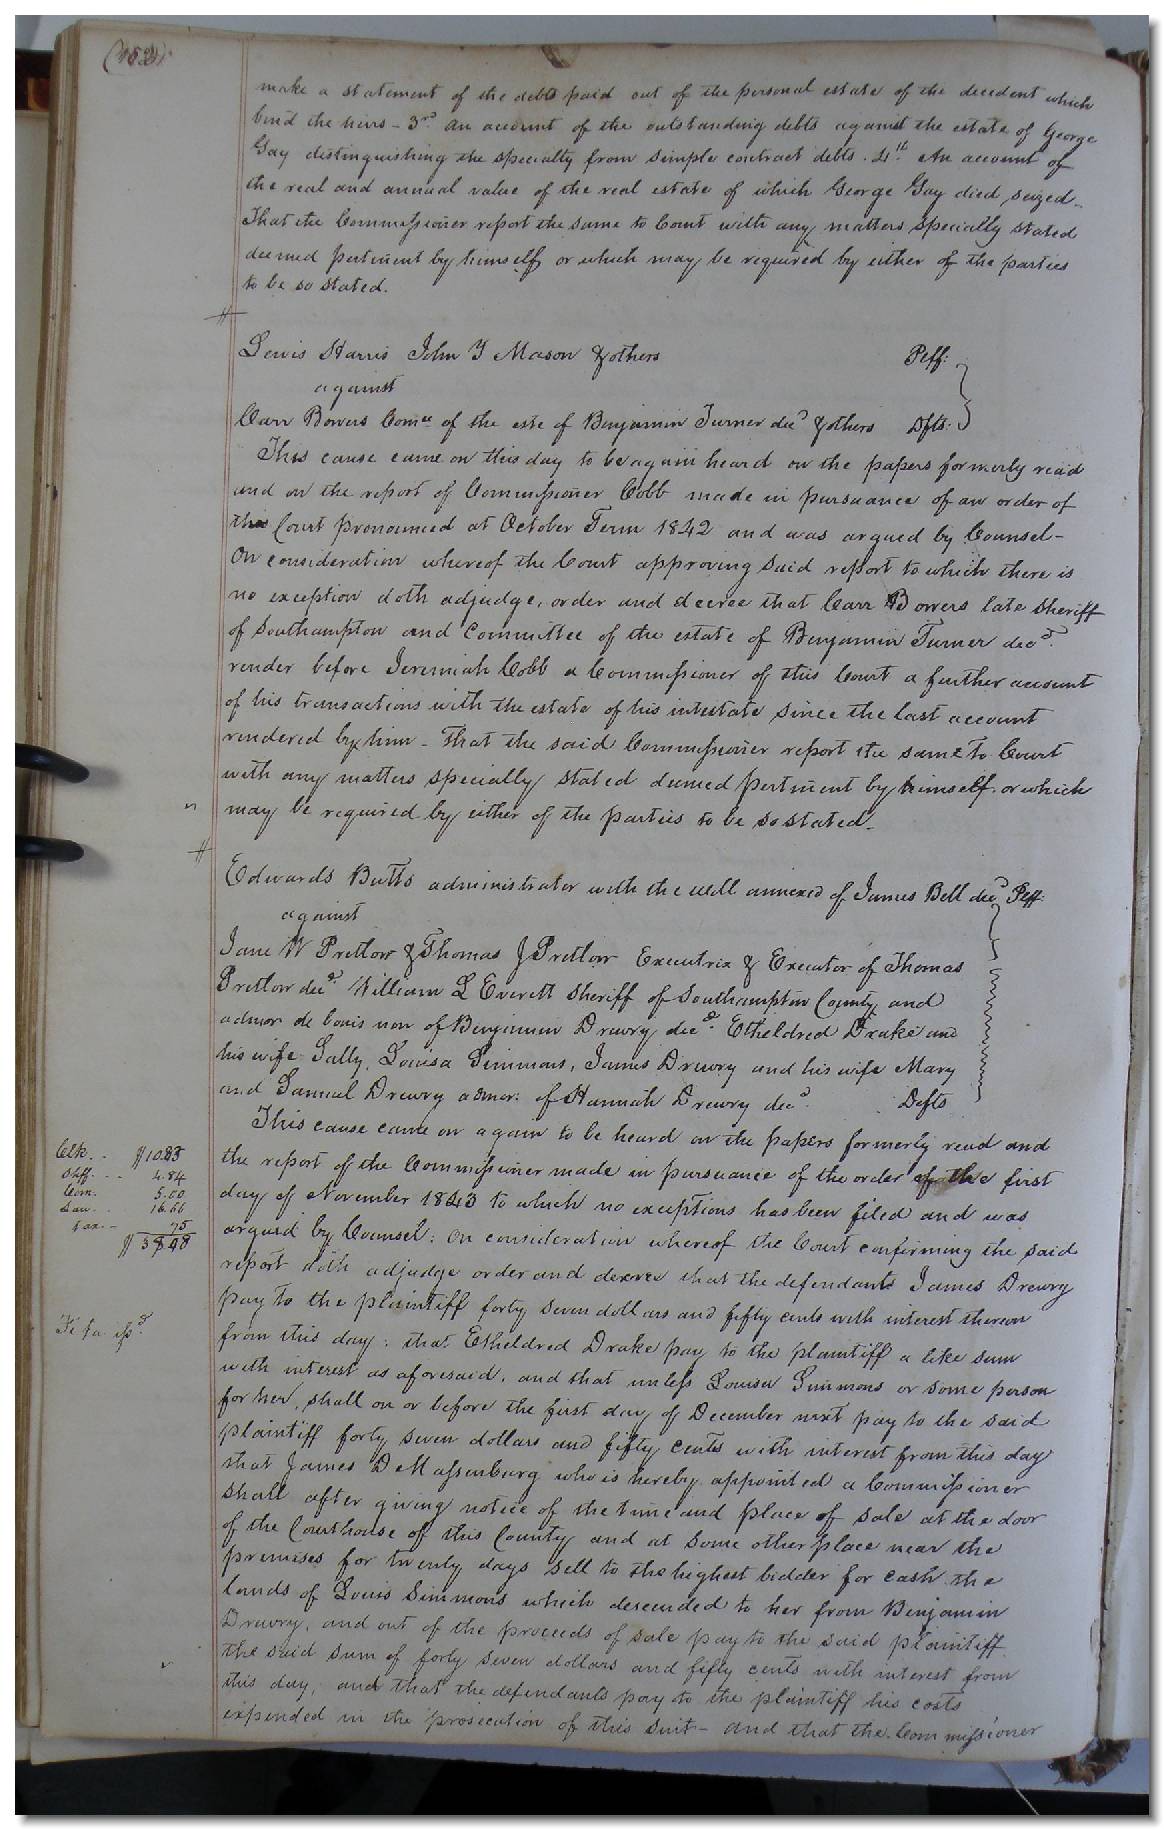 make a statement of the debts paid out of the personal estate of the decedent which
bind the heirs - 3rd. An account of the outstanding debts against the estate of George
Gay distinguishing the specialty from simple contract debts. 4th. An account of
the real and annual value of the real estate of which George Gay died seized.
That the Commissioner report the same to Court with any matters specially stated
deemed pertinent by himself or which may be required by either of the parties
to be so stated.
Lewis Harris John Y Mason & others Plff:
against
Carr Bowers Comee of the este of Benjamin Turner decd & others Dfts:
This cause came on this day to be again heard on the papers formerly read
and on the report of Commissioner Cobb made in pursuance of an order of
this Court pronounced at October Term 1842 and was argued by Counsel -
On consideration whereof the Court approving said report to which there is
no exception doth adjudge, order and decree that Carr Bowers late Sheriff
of Southampton and Committee of the estate of Benjamin Turner decd.
render before Jeremiah Cobb a Commissioner of this Court a further account
of his transactions with the estate of his intestate since the last account
rendered by him - That the said Commissioner report the same to Court
with any matters specially stated deemed pertinent by himself or which
may be required by either of the parties to be so stated -
Edwards Butts administrator with the will annexed of James Bell decd Plff:
against
Jane W Pretlow & Thomas J Pretlow Executrix & Executor of Thomas
Pretlow decd. William L Everett Sheriff of Southampton County and
admor de bonis non of Benjamin Drewry decd. Etheldred Drake and
his wife Sally, Louisa Simmons, James Drewry and his wife Mary
and Samuel Drewry admor. of Hannah Drewry decd. Defts
This cause came on again to be heard on the papers formerly read and
the report of the Commissioner made in pursuance of the order of the first
day of November 1843 to which no exceptions has been filed and was
argued by Counsel: On consideration whereof the Court confirming the said
report doth adjudge order and decree that the defendants James Drewry
pay to the plaintiff forty seven dollars and fifty cents with interest thereon
from this day: that Etheldred Drake pay to the plaintiff a like sum
with interest as aforesaid, and that unless Louisa Simmons or some person
for her, shall on or before the first day of December next pay to the said
plaintiff forty seven dollars and fifty cents with interest from this day
that James D Massenburg who is hereby appointed a Commissioner
shall after giving notice of the time and place of sale at the door
of the Courthouse of this County and at some other place near the
premises for twenty days sell to the highest bidder for cash the
lands of Louis Simmons which descended to her from Benjamin
Drewry, and out of the proceeds of sale pay to the said plaintiff
the said sum of forty seven dollars and fifty cents with interest from
this day, and that the defendants pay to the plaintiff his costs
expended in the prosecution of this suit - and that the Commissioner
Clk. . $10.83
Shff. 4.84
Com. 5.00
Law. 16.66
Tax. - 75
Fi fa issd.